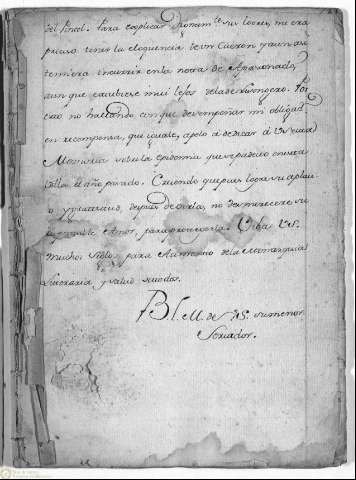 del Pincel. Para explicar dignam.te su loor, me era
preciso tener la eloquencia de un Ciceron, y aun así
temiera incurrir en la nota de Apasionado,
aun que estubiese mui lexos de la de Lisongero. Por
eso no hallando con que desempeñar mi obligac.
en recompensa, que iguale, apelo á dedicar á V.S. esta
Memoria sobre la epidemia que se padecio en esta
el año pasado. Creiendo que pues logra su aplau
so y gratitud, despues de oirla, no desmerecerá su
Amor, para protegerla. Viba V.S.
muchos Siglos para Aumento de la Monarquia
Literaria y salud de todos.
B. l. M. de V.S. su menor
Servidor.